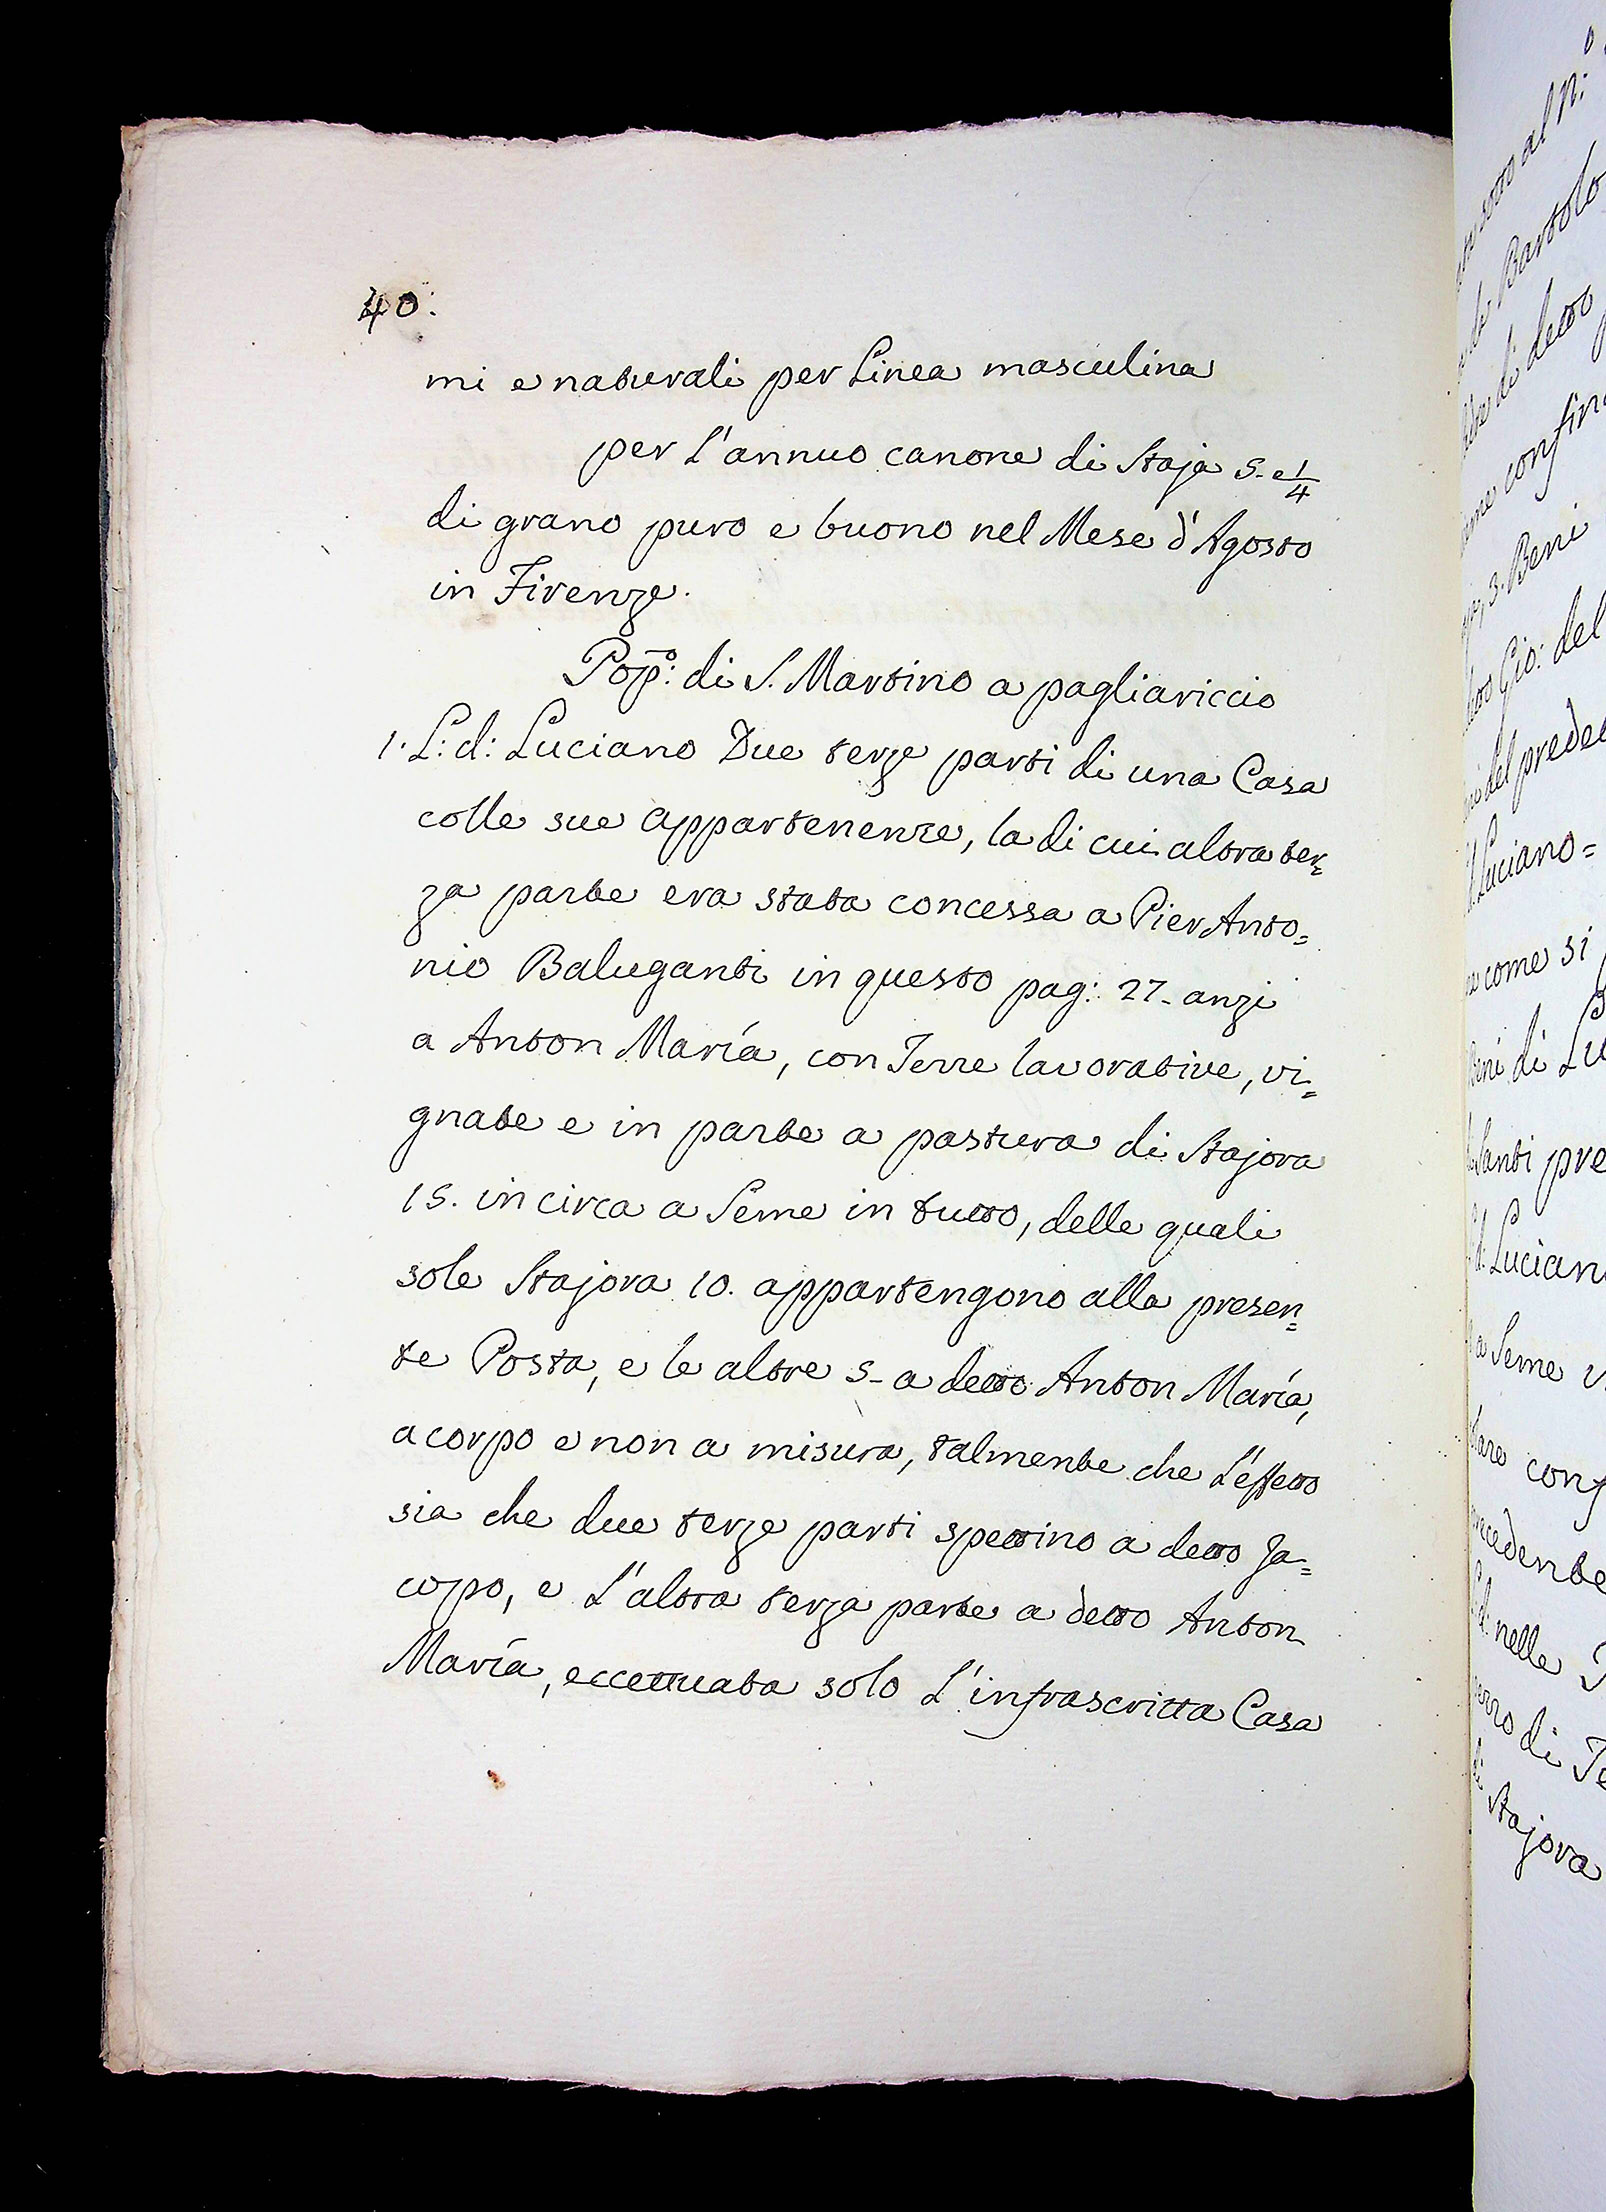 40.
mi e naturali per Linea masculina
per l'annuo canone di Staja 5. e 1/4
di grano puro e buono nel Mese d'Agosto
in Firenze.
Popo: di S. Martino a pagliariccio
1. L: d: Luciano Due terze parti di una Casa
colle sue appartenenze, la di cui altra ter=
za parte era stata concessa a Pier Anto=
nio Baluganti in questo pag: 27. anzi
a Anton María, con Terre lavorative, vi=
gnate e in parte a pastura di Stajora
15. in circa a Seme in tutto, delle quali
sole Stajora 10. appartengono alla presen=
te Posta, e le altre 5. a detto Anton María,
a corpo e non a misura, talmente che l'effetto
sia che due terze parti spettino a detto Ja=
copo, e l'altra terza parte a detto Anton
María, eccettuata solo l'infrascritta Casa
sotto al n:
Bartolo
di detto
confin
3. Beni
Gio: del
del predet
Luciano=
come si
di Lu
Santi pre
d: Lucian
a Seme
conf
nelle
di Te
Stajora